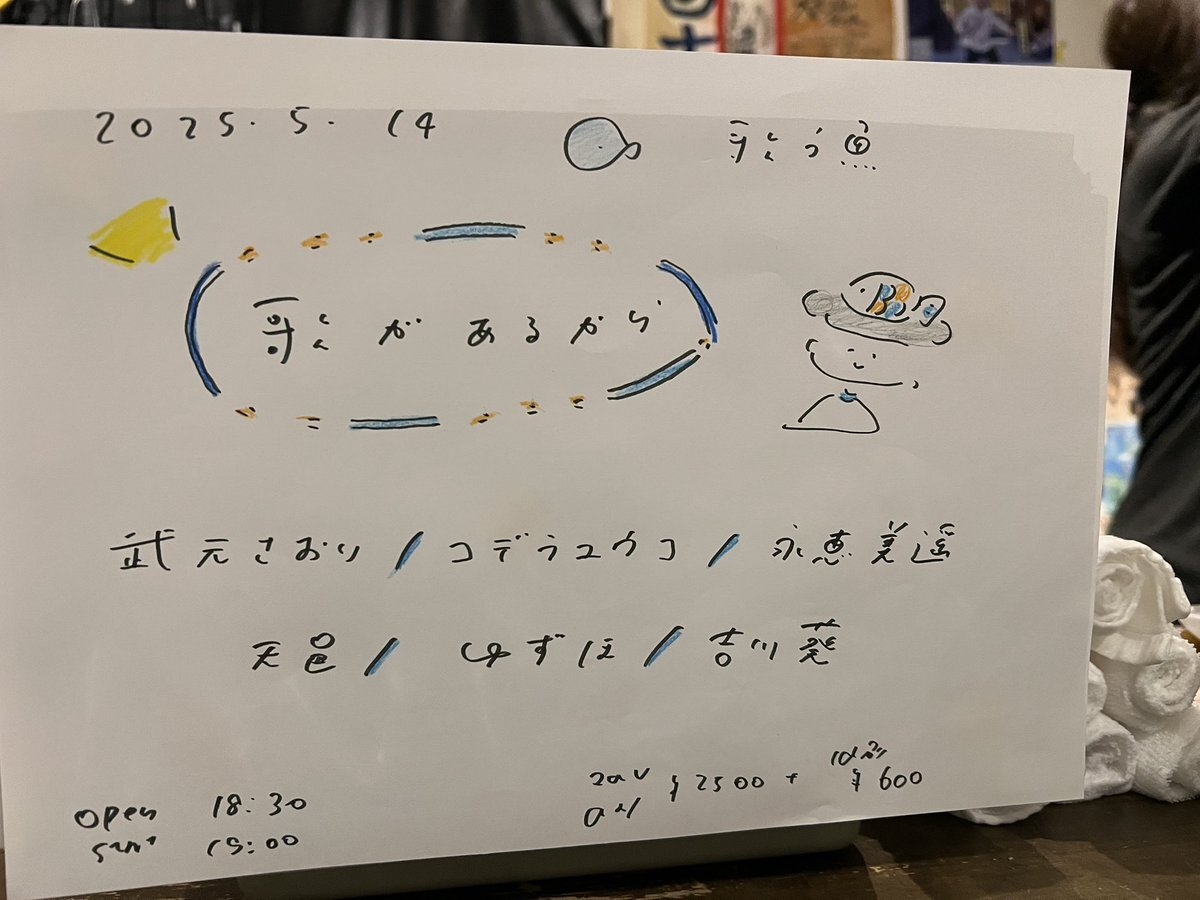 2025.5.14 歌う魚
歌があるから
武元さおり / コデラユウコ / 永恵美遥
天邑 / ゆずほ / 吉川葵
1d
¥2500 + ¥600
open 18:30
start 19:00